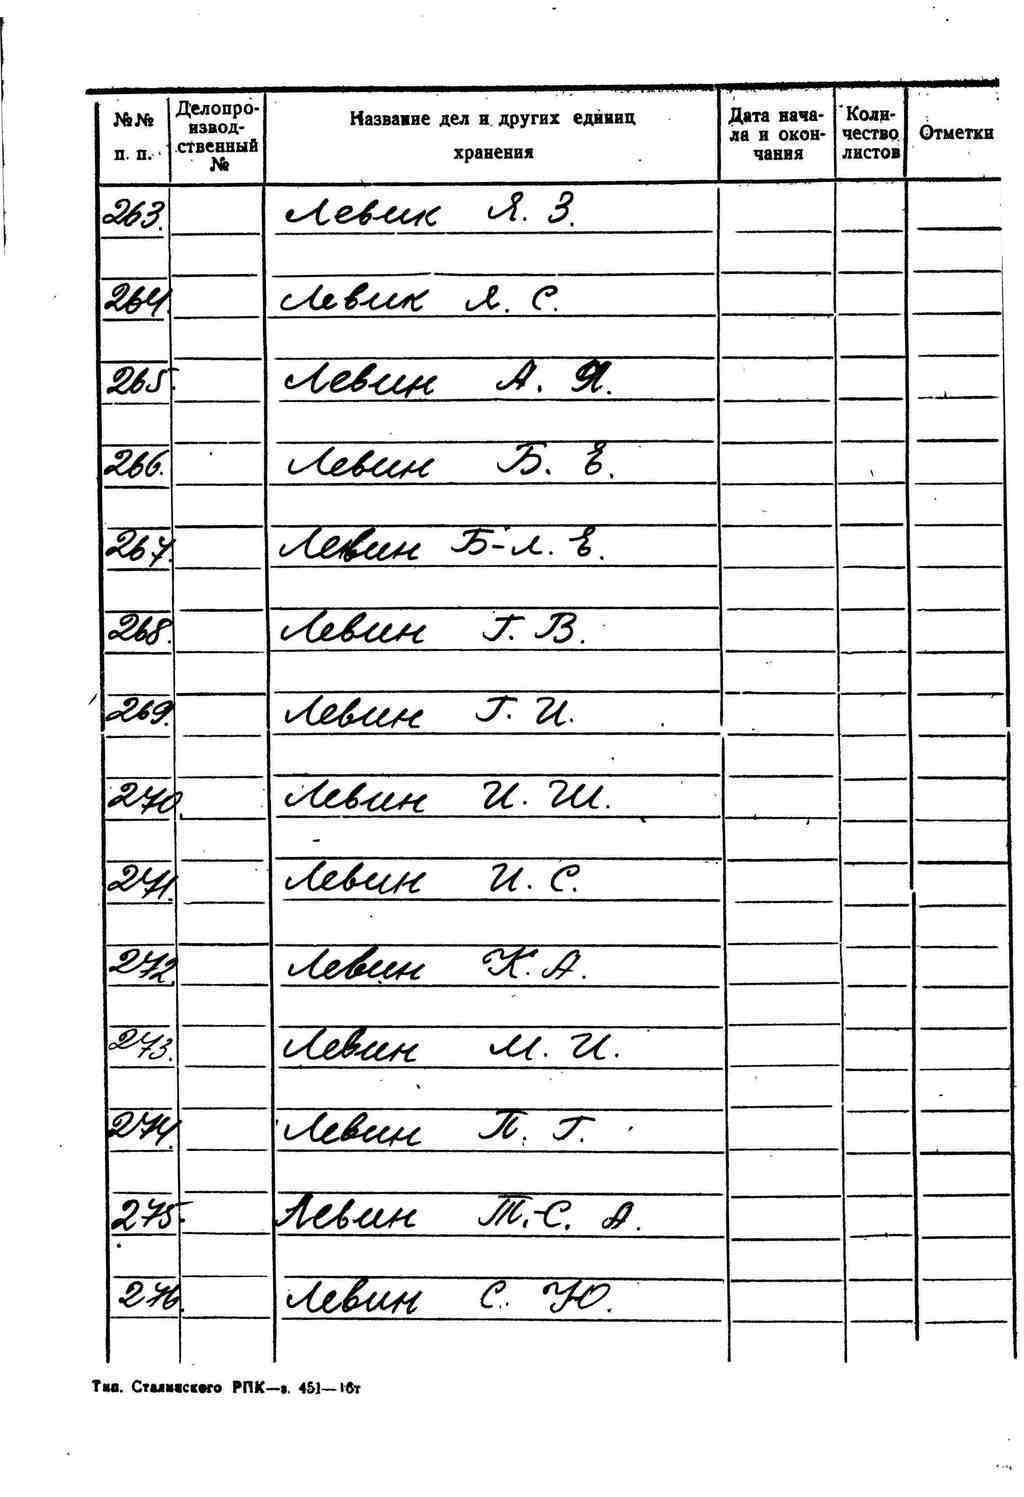 №№ п. п. Делопроизводственный № Название дел и других единиц хранения Дата начала и окончания Количество листов Отметки
263. Левик Я. З.
264. Левик Я. С.
265. Левин А. Я.
266. Левин Б. Е.
267. Левин Б-Л. Е.
268. Левин Г. В.
269. Левин Г. И.
270. Левин И. Ш.
271. Левин И. С.
272. Левин К. А.
273. Левин М. И.
274. Левин П. Г.
275. Левин Т.-С. А.
276. Левин С. Ю.
Тип. Сталинского РПК—з. 451—16т